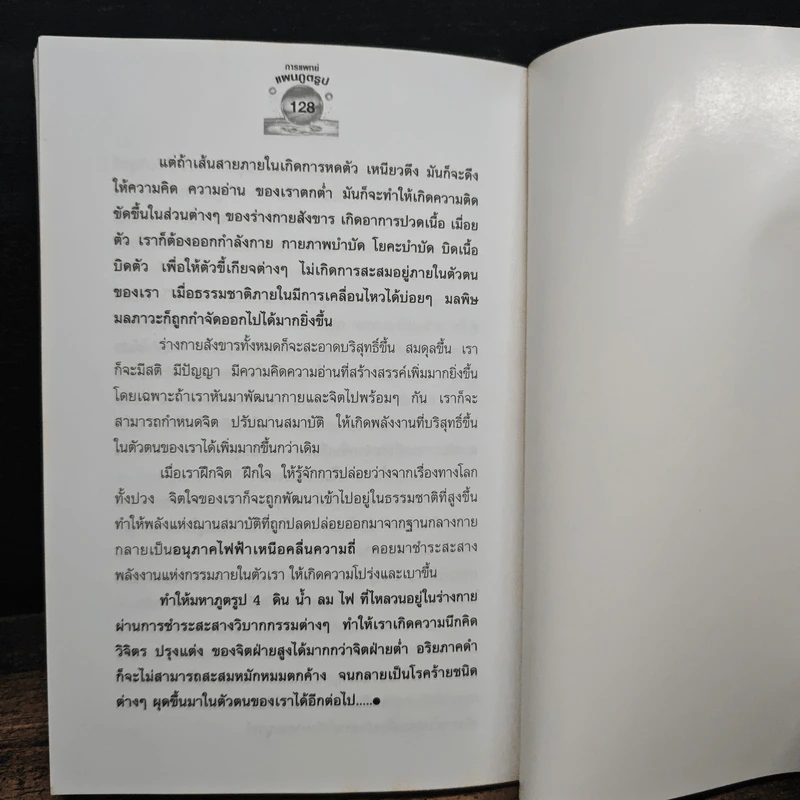 การแพทย์
แผนภูตรูป
128
แต่ถ้าเส้นสายภายในเกิดการหดตัว เหนียวตึง มันก็จะดึง
ให้ความคิด ความอ่าน ของเราตกต่ำ มันก็จะทำให้เกิดความติด
ขัดขึ้นในส่วนต่างๆ ของร่างกายสังขาร เกิดอาการปวดเนื้อ เมื่อย
ตัว เราก็ต้องออกกำลังกาย กายภาพบำบัด โยคะบำบัด บิดเนื้อ
บิดตัว เพื่อให้ตัวขี้เกียจต่างๆ ไม่เกิดการสะสมอยู่ภายในตัวตน
ของเรา เมื่อธรรมชาติภายในมีการเคลื่อนไหวได้บ่อยๆ มลพิษ
มลภาวะก็ถูกกำจัดออกไปได้มากยิ่งขึ้น
ร่างกายสังขารทั้งหมดก็จะสะอาดบริสุทธิ์ขึ้น สมดุลขึ้น เรา
ก็จะมีสติ มีปัญญา มีความคิดความอ่านที่สร้างสรรค์เพิ่มมากยิ่งขึ้น
โดยเฉพาะถ้าเราหันมาพัฒนากายและจิตไปพร้อมๆ กัน เราก็จะ
สามารถกำหนดจิต ปรับฌานสมาบัติ ให้เกิดพลังงานที่บริสุทธิ์ขึ้น
ในตัวตนของเราได้เพิ่มมากขึ้นกว่าเดิม
เมื่อเราฝึกจิต ฝึกใจ ให้รู้จักการปล่อยว่างจากเรื่องทางโลก
ทั้งปวง จิตใจของเราก็จะถูกพัฒนาเข้าไปอยู่ในธรรมชาติที่สูงขึ้น
ทำให้พลังแห่งฌานสมาบัติที่ถูกปลดปล่อยออกมาจากฐานกลางกาย
กลายเป็นอนุภาคไฟฟ้าเหนือคลื่นความถี่ คอยมาชำระสะสาง
พลังงานแห่งกรรมภายในตัวเรา ให้เกิดความโปร่งและเบาขึ้น
ทำให้มหาภูตรูป 4 ดิน น้ำ ลม ไฟ ที่ไหลวนอยู่ในร่างกาย
ผ่านการชำระสะสางวิบากกรรมต่างๆ ทำให้เราเกิดความนึกคิด
วิจิตร ปรุงแต่ง ของจิตฝ่ายสูงได้มากกว่าจิตฝ่ายต่ำ อริยภาคดำ
ก็จะไม่สามารถสะสมหมักหมมตกค้าง จนกลายเป็นโรคร้ายชนิด
ต่างๆ ผุดขึ้นมาในตัวตนของเราได้อีกต่อไป.....●